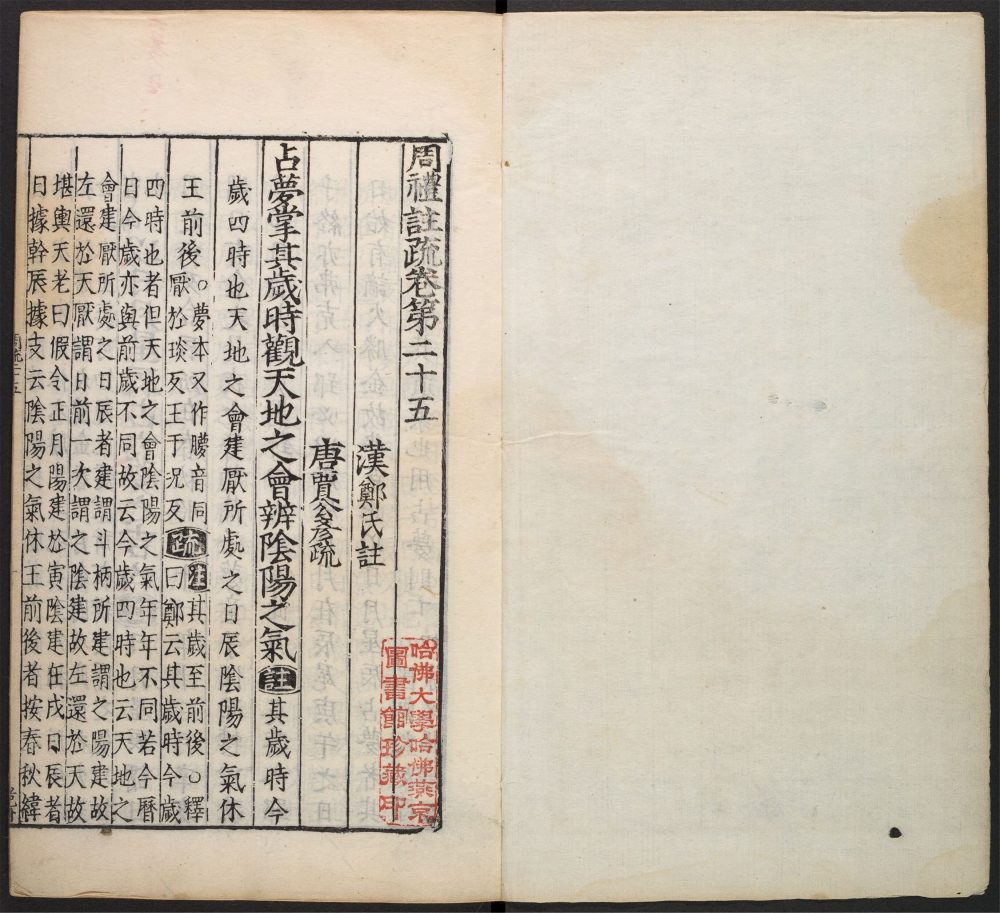 周禮註疏卷第二十五
漢鄭氏註
唐賈公彥疏
占夢掌其歲時觀天地之會辨陰陽之氣註其歲時今
歲四時也天地之會建厭所處之日辰陰陽之氣休
王前後○夢本又作㝱音同
厭於琰反王于況反
疏註其歲至前後○釋
曰鄭云其歲時今歲
四時也者但天地之會陰陽之氣年年不同若今曆
日今歲亦與前歲不同故云今歲四時也云天地之
會建厭所處之日辰者建謂斗柄所建謂之陽建故
左還於天厭謂日前一次謂之陰建故左還於天故
堪輿天老曰假令正月陽建於寅陰建在戌日辰者
日據幹辰據支云陰陽之氣休王前後者按春秋緯
哈佛大學哈佛燕京
圖書館珍藏印